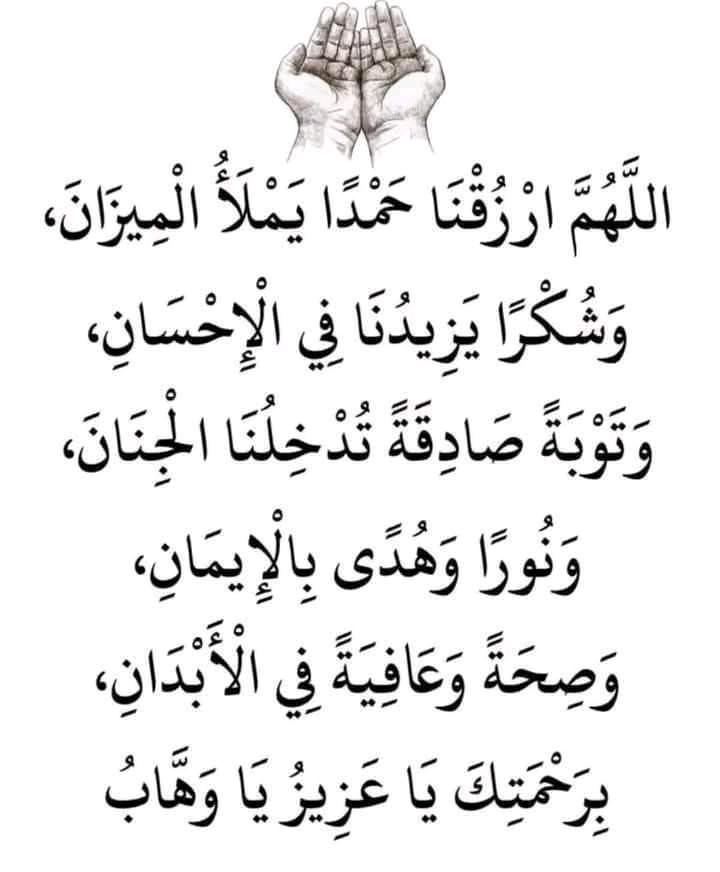 اللَّهُمَّ ارْزُقْنَا حَمْدًا يَمْلَأُ الْمِيزَانَ،
وَشُكْرًا يَزِيدُنَا فِي الْإِحْسَانِ،
وَتَوْبَةً صَادِقَةً تُدْخِلُنَا الْجِنَانَ،
وَنُورًا وَهُدًى بِالْإِيمَانِ،
وَصِحَةً وَعَافِيَةً فِي الْأَبْدَانِ،
بِرَحْمَتِكَ يَا عَزِيزُ يَا وَهَّابُ